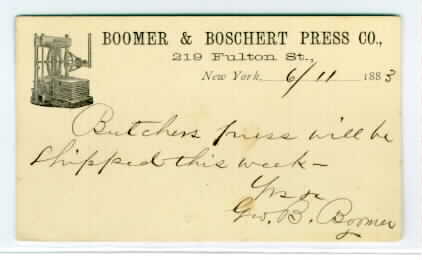 BOOMER & BOSCHERT PRESS CO.,
219 Fulton St.,
New York, 6/11 1883
Butchers press will be
shipped this week—
Yrs &c
Geo. B. Boomer